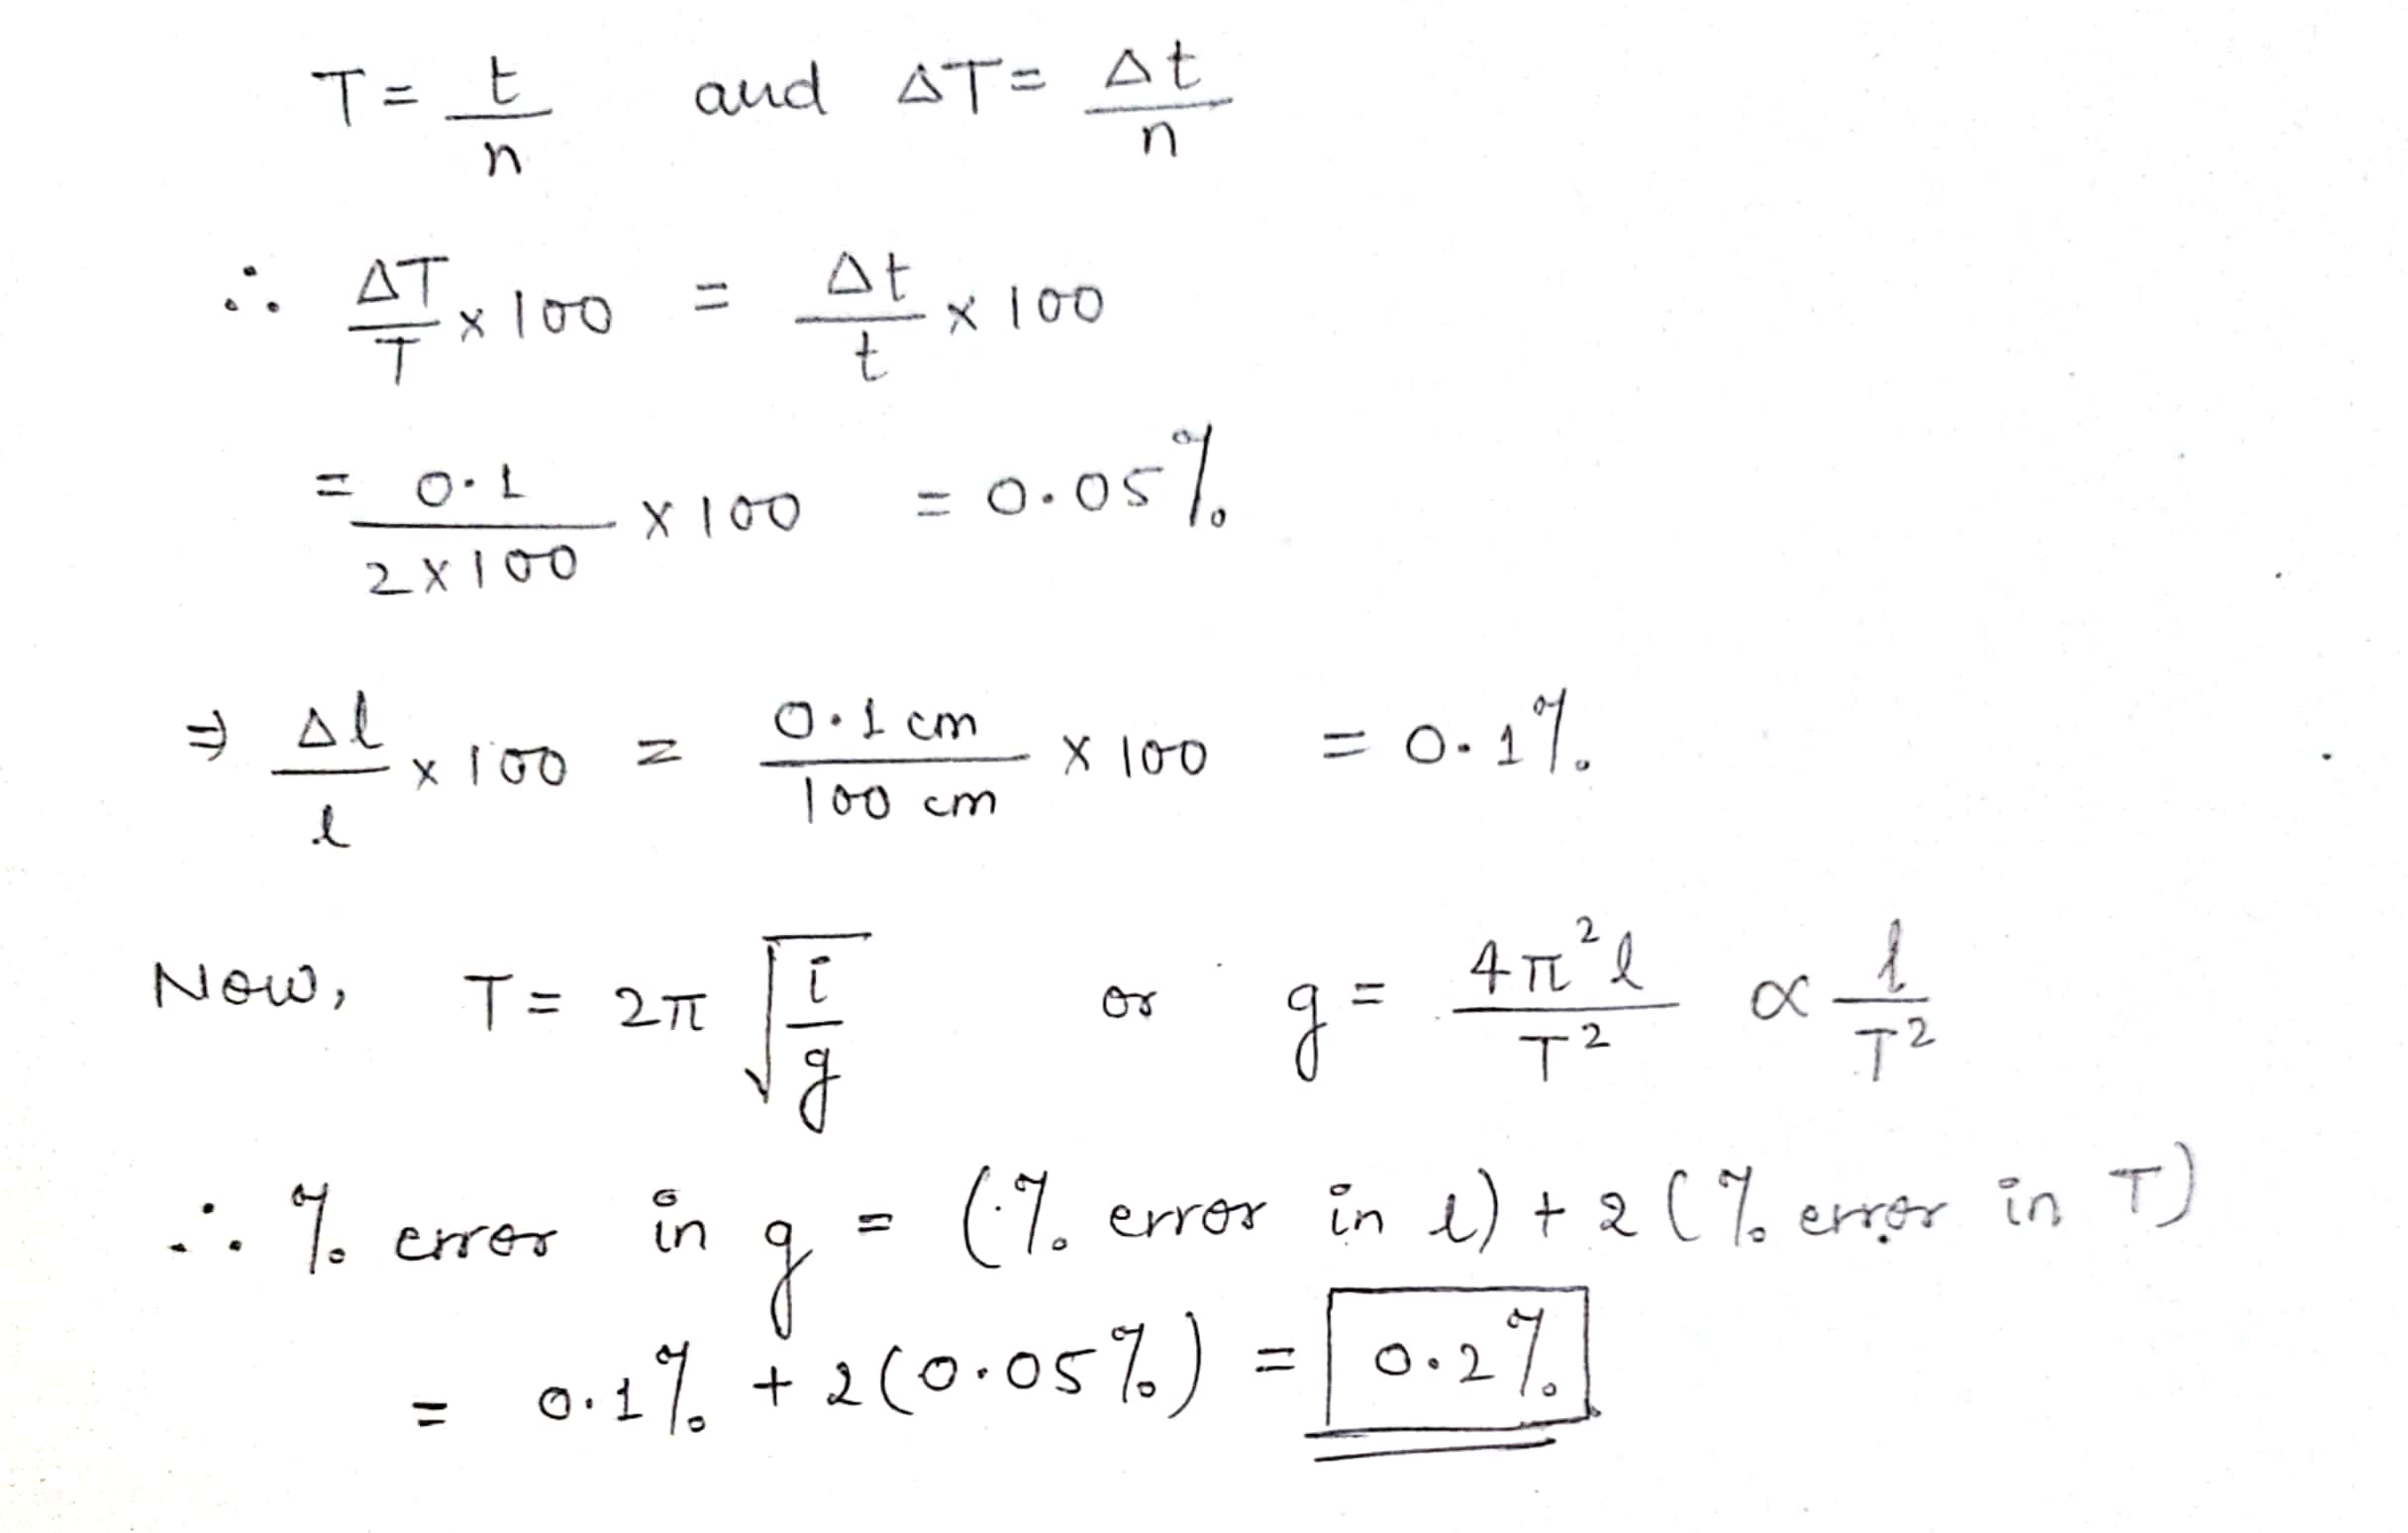 T = t/n and ΔT = Δt/n
∴ ΔT/T × 100 = Δt/t × 100
= 0.1/(2×100) × 100 = 0.05%
⇒ Δl/l × 100 = 0.1 cm/100 cm × 100 = 0.1%
Now, T = 2π √(l/g) or g = 4π²l/T² ∝ l/T²
∴ % error in g = (% error in l) + 2 (% error in T)
= 0.1% + 2(0.05%) = 0.2%